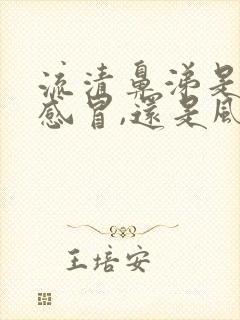 流清鼻涕是
感冒,還是風
王培安